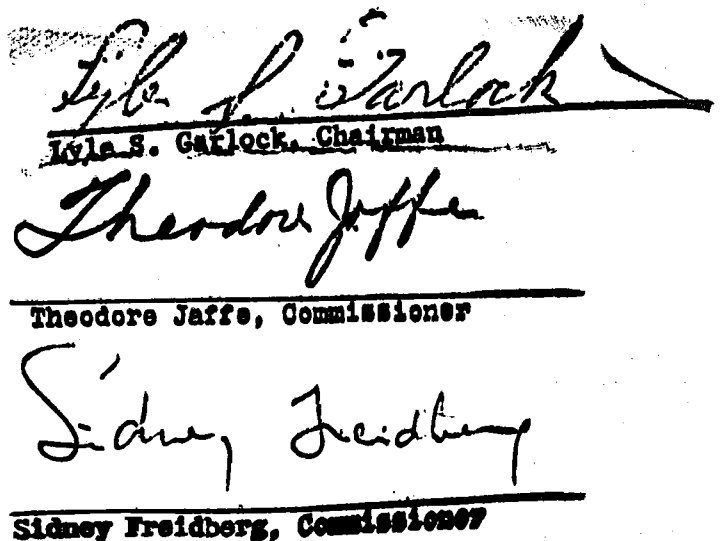 Lyle S. Garlock
Lyle S. Garlock, Chairman
Theodore Jaffe
Theodore Jaffe, Commissioner
Sidney Freidberg
Sidney Freidberg, Commissioner